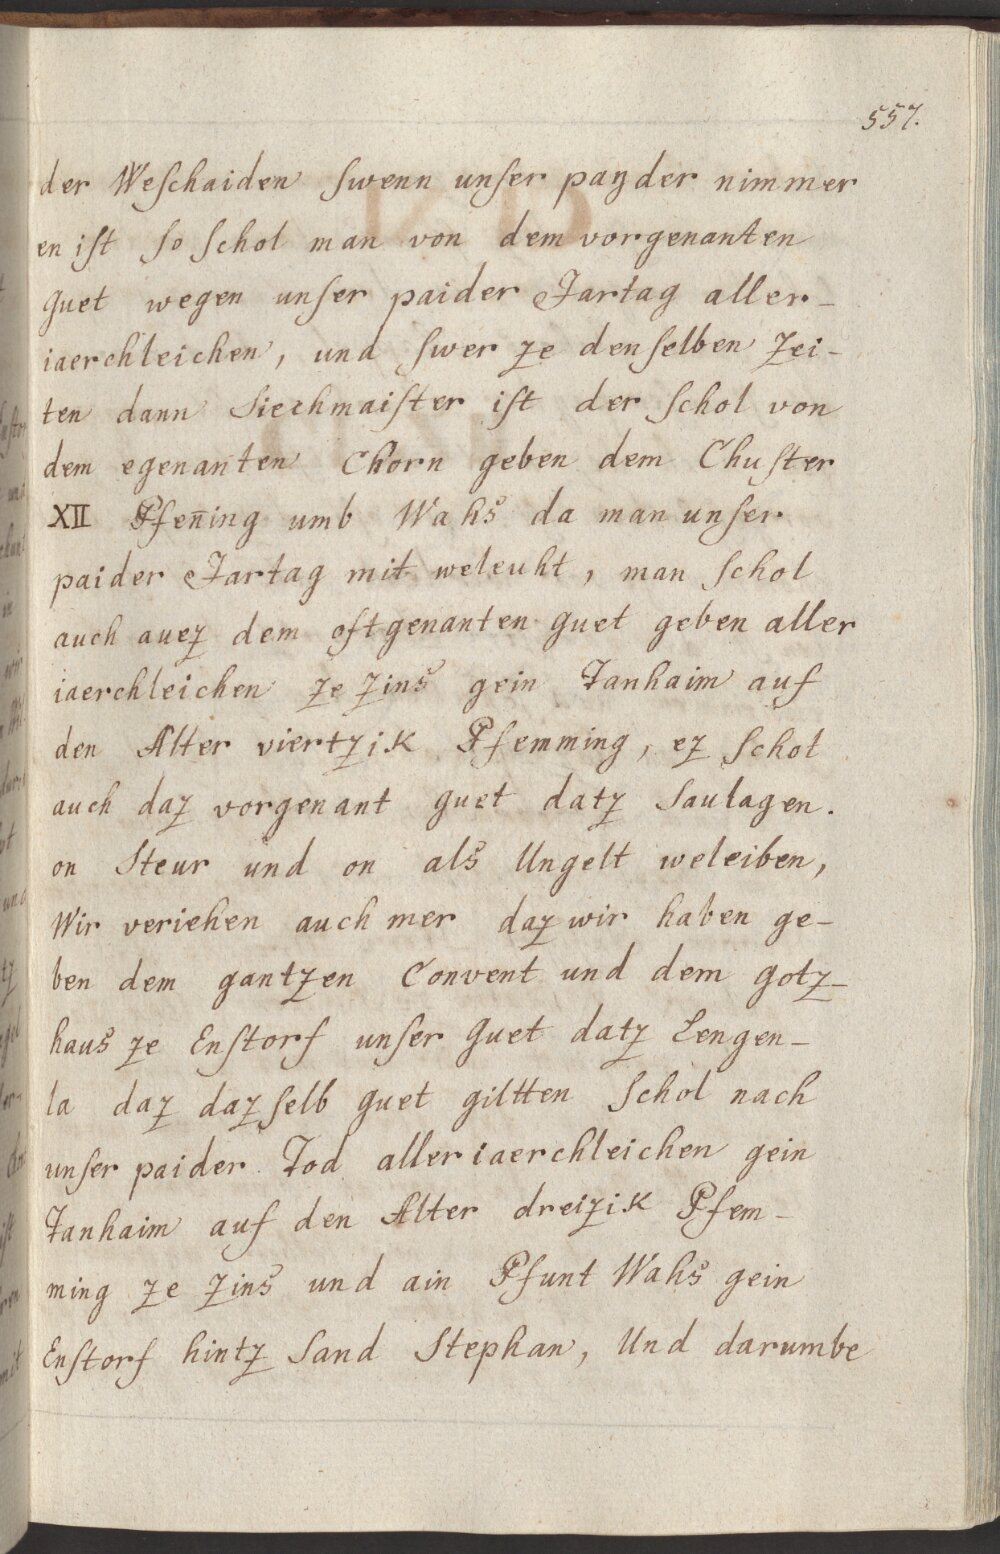 557.
der Weſchaiden ſwenn unſer payder nimmer
en iſt ſo ſchol man von dem vorgenanten
guet wegen unſer paider Jartag aller-
iaerchleichen, und ſwer ze denſelben zei-
ten dann Siechmaiſter iſt der ſchol von
dem egenanten Chorn geben dem Chuſter
XII Pfen̄ing umb Wahs da man unſer
paider Jartag mit weleuht, man ſchol
auch auez dem oftgenanten guet geben aller
iaerchleichen ze zins gein Tanhaim auf
den Alter viertzik Pfemming, ez ſchol
auch daz vorgenant guet datz Saulagen.
on Steur und on als Ungelt weleiben,
Wir veriehen auch mer daz wir haben ge-
ben dem gantzen Convent und dem gotz-
haus ze Enſtorf unſer guet datz Lengen-
la daz dazſelb guet giltten ſchol nach
unſer paider Tod alleriaerchleichen gein
Tanhaim auf den Alter dreizik Pfem-
ming ze zins und ain Pfunt Wahs gein
Enſtorf hintz Sand Stephan, Und darumbe